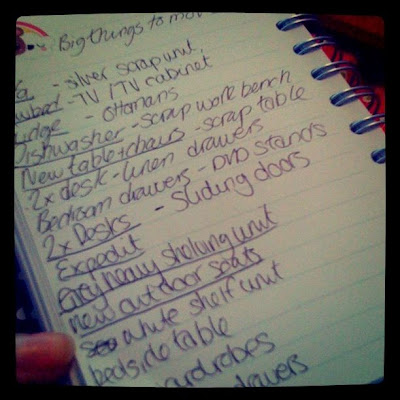 Big things to mov
- silver scrap unit,
- TV / TV cabinet
- Ottomans
Dishwasher - scrap work bench
New table + chairs - scrap table
2x desk - linen drawers
Bedroom drawers - DVD stands
2x Desks - Sliding doors
Expedit
heavy shelving unit
new outdoor seats
white shelf unit
bedside table
ardrobes
drawers